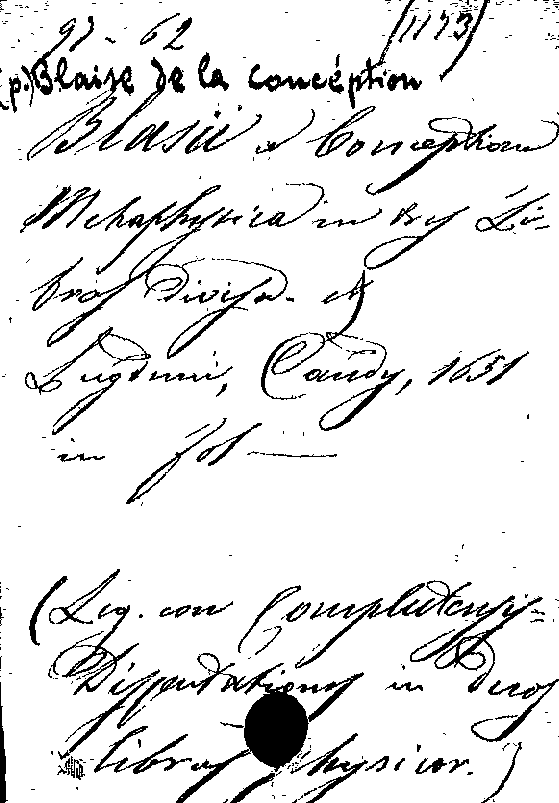 97-62 (1173)
(p.) Blaise de la conception
Blasii a Conceptione
Metaphysica in tres Li-
bros divisa. et
Lugduni, Candy, 1651
in fol —
(Leg. con Complutensis
Disputationes in duos
libros Physicor.)